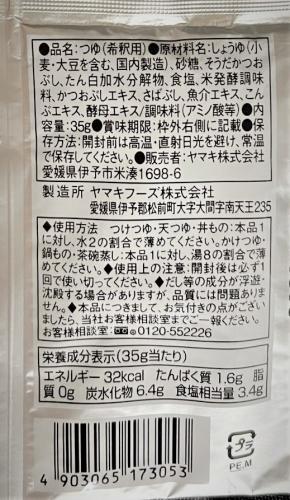 ●品名:つゆ(希釈用)●原材料名:しょうゆ(小
麦・大豆を含む、国内製造)、砂糖、そうだかつお
ぶし、たん白加水分解物、食塩、米発酵調味
料、かつおぶしエキス、さばぶし、魚介エキス、こん
ぶエキス、酵母エキス/調味料(アミノ酸等)●
内容量:35g●賞味期限:枠外右側に記載●保
存方法:開封前は高温・直射日光を避け、常温
で保存してください。●販売者:ヤマキ株式会社
愛媛県伊予市米湊1698-6
製造所 ヤマキフーズ株式会社
愛媛県伊予郡松前町大字大間字南天王235
◆使用方法 つけつゆ・天つゆ・丼もの:本品1
に対し、水2の割合で薄めてください。かけつゆ・
鍋もの・茶碗蒸し:本品1に対し、湯8の割合で薄
めてください。◆使用上の注意:開封後は必ず1
回で使い切ってください。◆だし等の成分が浮遊・
沈殿する場合がありますが、品質には問題ありま
せん。◆本品につきまして、お気付きの点がござい
ましたら、当社お客様相談室までご一報ください。
お客様相談室:0120-552226
栄養成分表示(35g当たり)
エネルギー 32kcal たんぱく質 1.6g 脂
質 0g 炭水化物 6.4g 食塩相当量 3.4g
4 903065 173053
プラ
PE,M